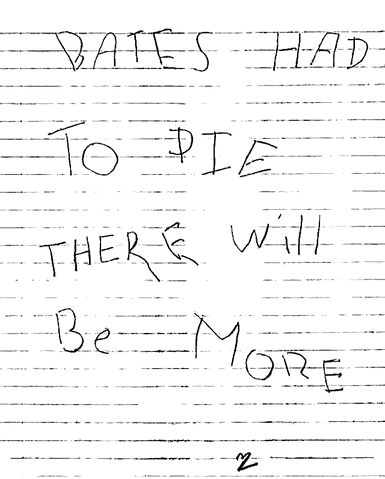 BATES HAD
TO DIE
THERE Will
Be MORE
2